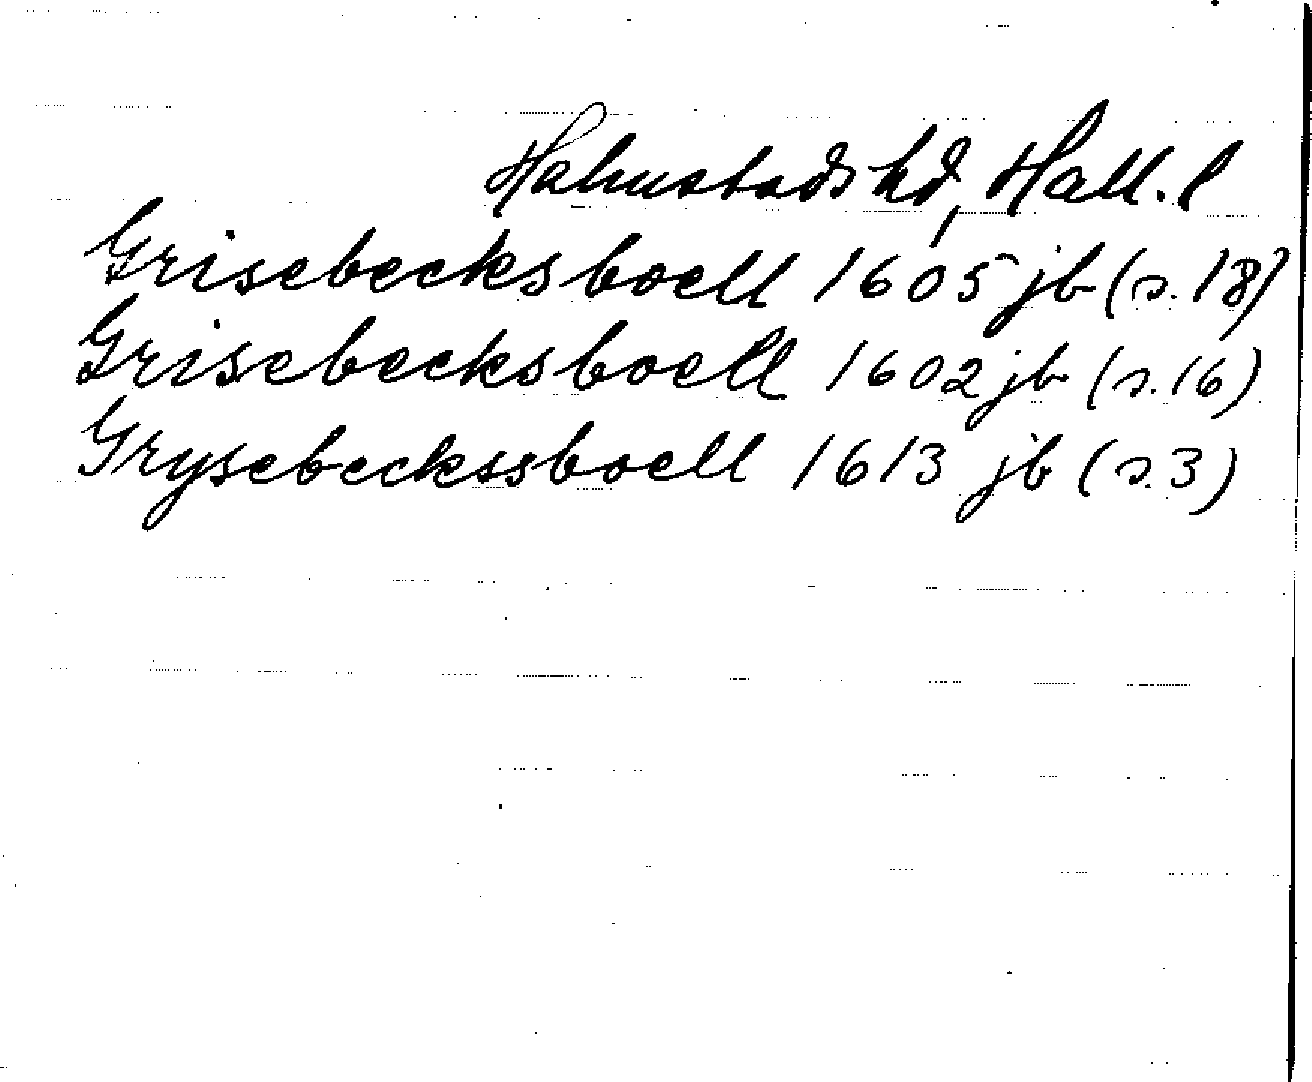 Halmstads hd, Hall. l
Grisebecksboell 1605 jb (s. 18)
Grisebecksboell 1602 jb (s. 16)
Grysebeckssboell 1613 jb (s. 3)